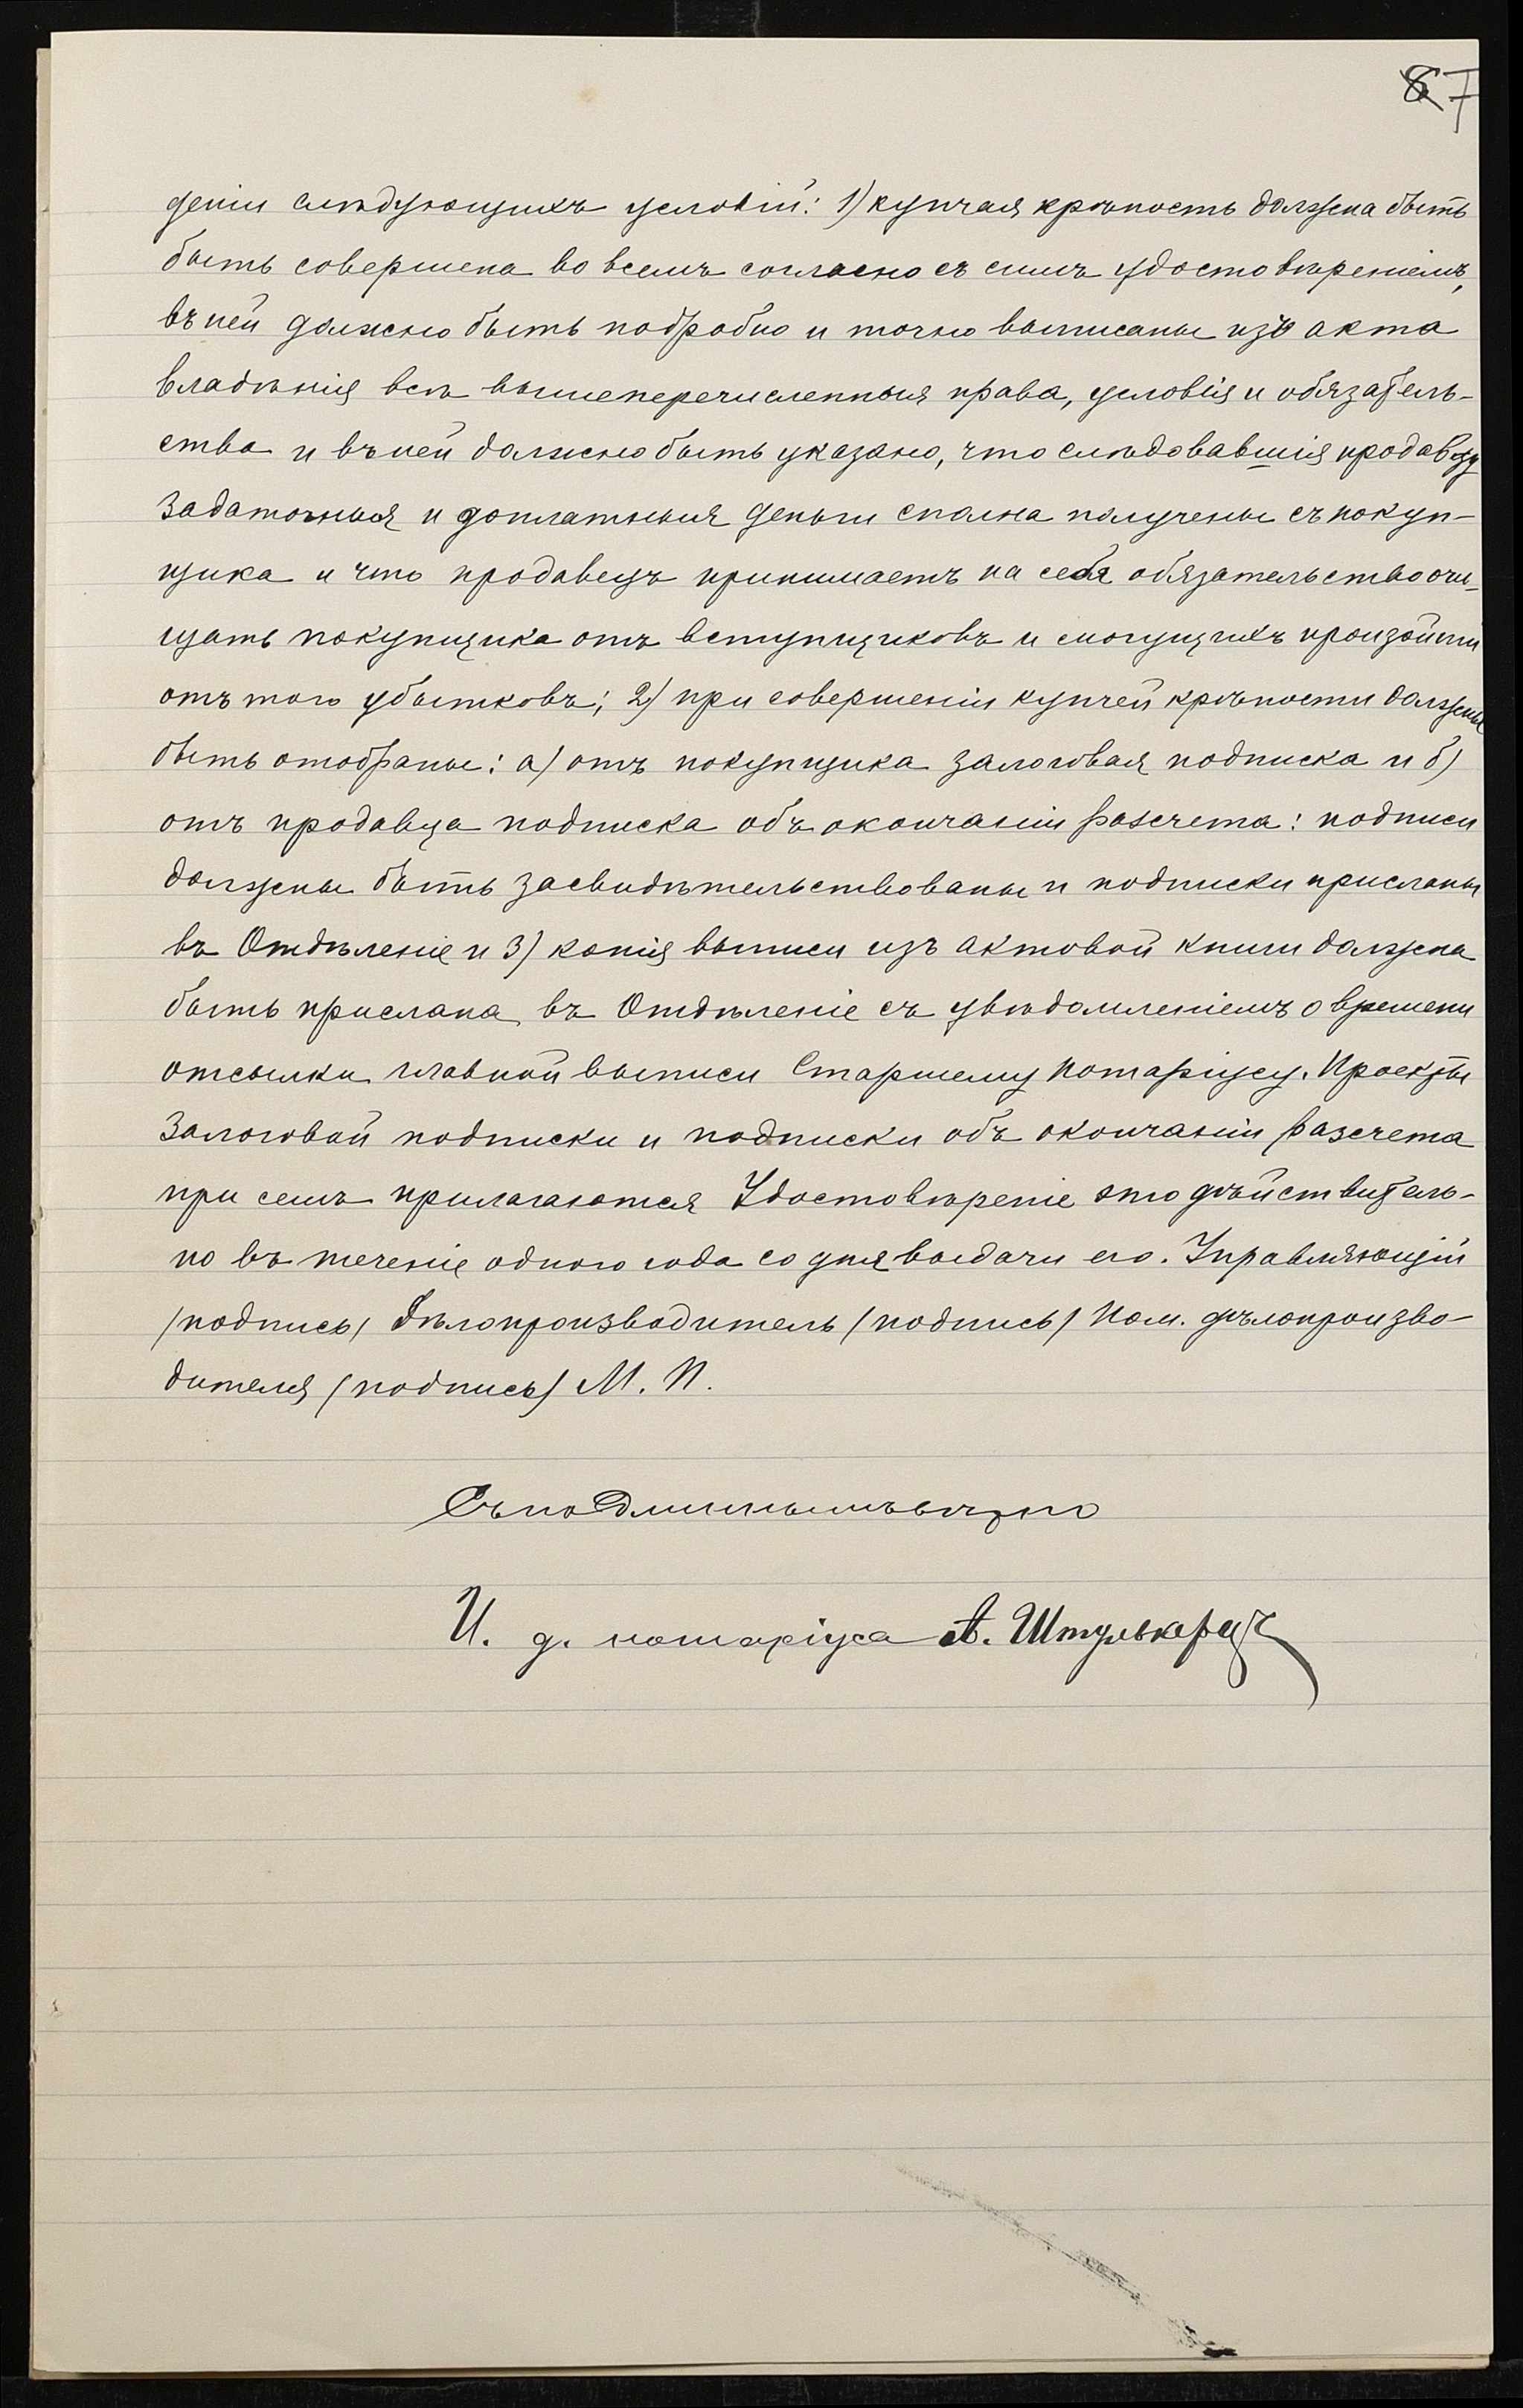 87
деніи слѣдующихъ условій: 1) купчая крѣпость должна быть
быть совершена во всемъ согласно съ симъ удостовѣреніемъ,
въ ней должно быть подробно и точно выписаны изъ акта
владѣнія всѣ вышеперечисленныя права, условія и обязатель-
ства и въ ней должно быть указано, что слѣдовавшія продавцу
задаточныя и доплатныя деньги сполна получены съ покуп-
щика и что продавецъ принимаетъ на себя обязательство очи-
щать покупщика отъ вступщиковъ и могущихъ произойти
отъ того убытковъ; 2) при совершеніи купчей крѣпости должны
быть отобраны: а) отъ покупщика залоговая подписка и б)
отъ продавца подписка объ окончаніи разсчета: подписи
должны быть засвидѣтельствованы и подписки присланы
въ Отдѣленіе и 3) копія выписи изъ актовой книги должна
быть прислана въ Отдѣленіе съ увѣдомленіемъ о времени
отсылки главной выписи Старшему Нотаріусу. Проекты
залоговой подписки и подписки объ окончаніи разсчета
при семъ прилагаются Удостовѣреніе это дѣйствитель-
но въ теченіе одного года со дня выдачи его. Управляющій
/подпись/ Дѣлопроизводитель /подпись/ Пом. дѣлопроизво-
дителя /подпись/ М. П.
Съ подлиннымъ вѣрно
И. д. нотаріуса А. Штулькерцъ